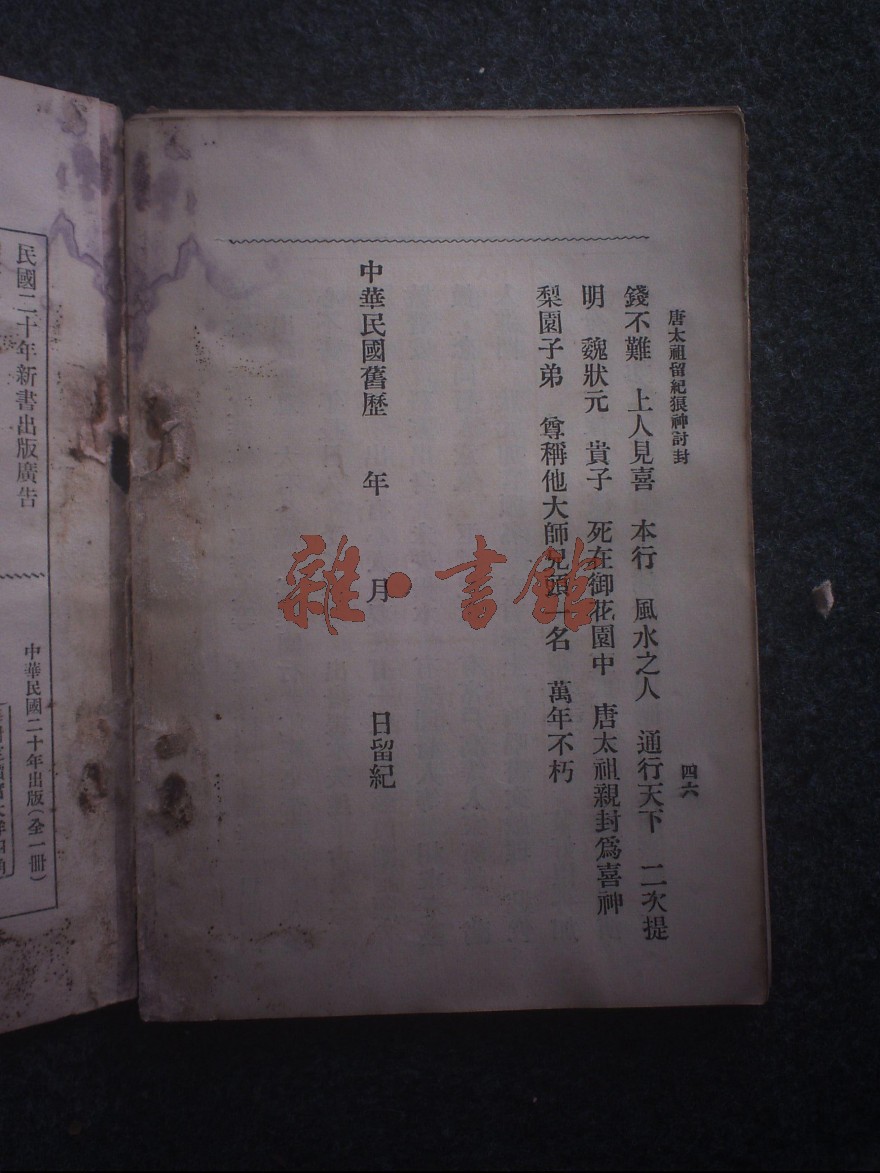 唐太祖留紀狼神討封
四六
錢不難　上人見喜　本行　風水之人　通行天下　二次提
明　魏狀元　貴子　死在御花園中　唐太祖親封爲喜神
梨園子弟　尊稱他大師兄頭一名　萬年不朽
中華民國舊歷　年　月　日留紀
雜·書館
民國二十年新書出版廣告
中華民國二十年出版（全一冊）